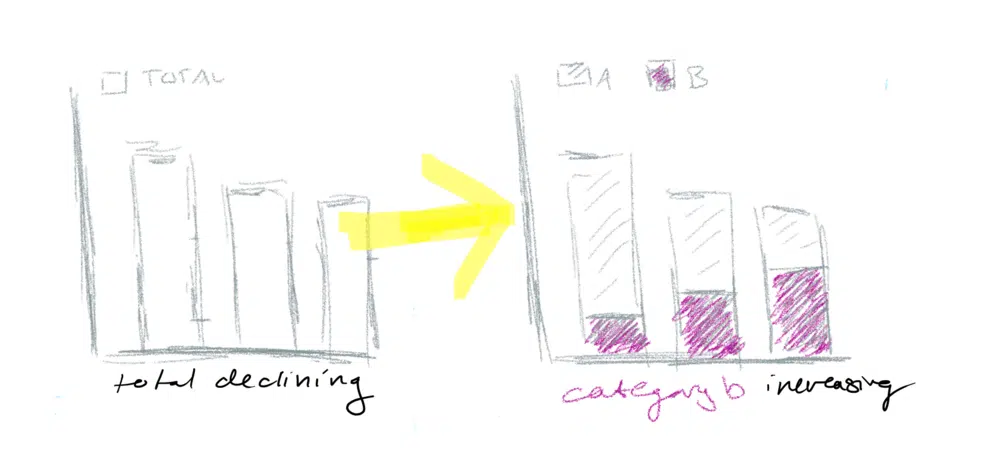 TOTAL
A B
total declining
category b increasing